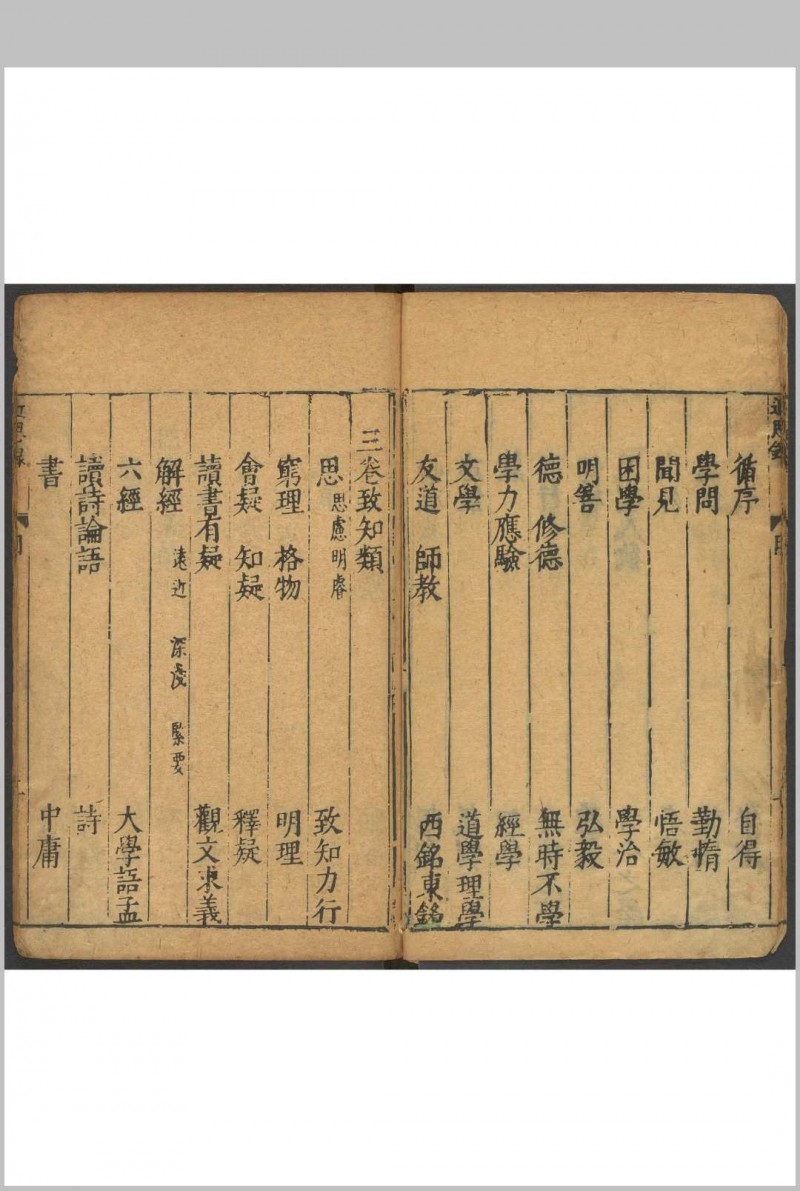 循序 自得
學問 勤惰
聞見 悟敏
困學 學治
明善 弘毅
德 修德 無時不學
學力應驗 經學
文學 道學理學
友道 師教 西銘東銘
三卷致知類
思 思慮明睿 致知力行
窮理 格物 明理
會疑 知疑 釋疑
讀書有疑 觀文求義
解經 遠近 深淺 緊要
六經 大學語孟
讀詩論語 詩
書 中庸